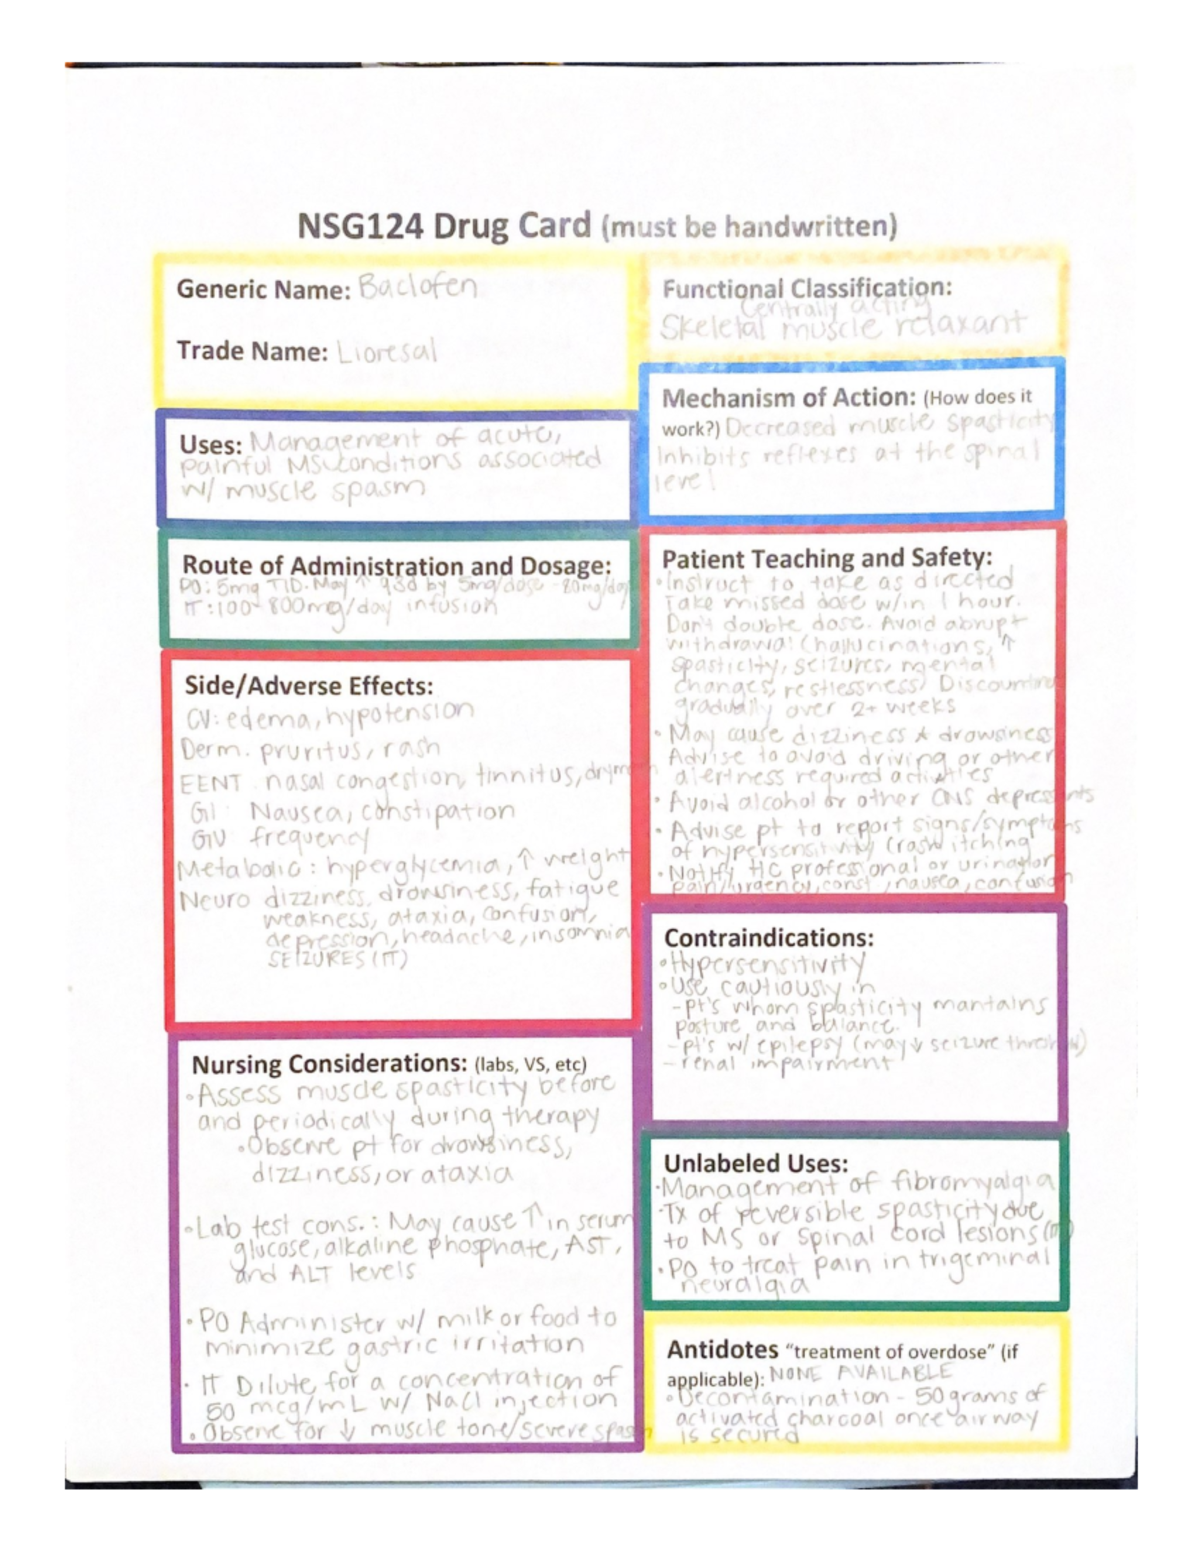 NSG124 Drug Card (must be handwritten)
Generic Name: Baclofen
Trade Name: Lioresal
Functional Classification:
Centrally acting
Skeletal muscle relaxant
Mechanism of Action: (How does it
work?) Decreased muscle spasticity
Inhibits reflexes at the spinal
level
Uses: Management of acute,
painful MS conditions associated
w/ muscle spasm
Route of Administration and Dosage:
PO: 5mg TID. May ↑ q3d by 5mg/dose - 80mg/day
IT: 100-800mg/day infusion
Patient Teaching and Safety:
• Instruct to take as directed
Take missed dose w/in 1 hour.
Don't double dose. Avoid abrupt
withdrawal (hallucinations, ↑
spasticity, seizures, mental
changes, restlessness) Discountinue
gradually over 2+ weeks
• May cause dizziness & drowsiness
Advise to avoid driving or other
alertness required activities
• Avoid alcohol or other CNS depressants
• Advise pt to report signs/symptoms
of hypersensitivity (rash itching
• Notify HC professional or urination
pain/urgency, const, nausea, confusion
Side/Adverse Effects:
CV: edema, hypotension
Derm. pruritus, rash
EENT. nasal congestion, tinnitus,
GI: Nausea, constipation
GU frequency
Metabolic: hyperglycemia, ↑ weight
Neuro dizziness, drowsiness, fatigue
weakness, ataxia, confusion,
depression, headache, insomnia
SEIZURES (IT)
Contraindications:
• Hypersensitivity
• Use cautiously in
- pt's whom spasticity mantains
posture and balance.
- pt's w/ epilepsy (may ↓ seizure threshold)
- renal impairment
Nursing Considerations: (labs, VS, etc)
• Assess muscle spasticity before
and periodically during therapy
• Observe pt for drowsiness,
dizziness, or ataxia
• Lab test cons.: May cause ↑ in serum
glucose, alkaline phosphate, AST,
and ALT levels
• PO Administer w/ milk or food to
minimize gastric irritation
• IT Dilute for a concentration of
50 mcg/mL w/ NaCl injection
• Observe for ↓ muscle tone/severe spasm
Unlabeled Uses:
• Management of fibromyalgia
• Tx of reversible spasticity due
to MS or spinal cord lesions (IT)
• PO to treat pain in trigeminal
neuralgia
Antidotes "treatment of overdose" (if
applicable): NONE AVAILABLE
• Decontamination - 50 grams of
activated charcoal once airway
is secured